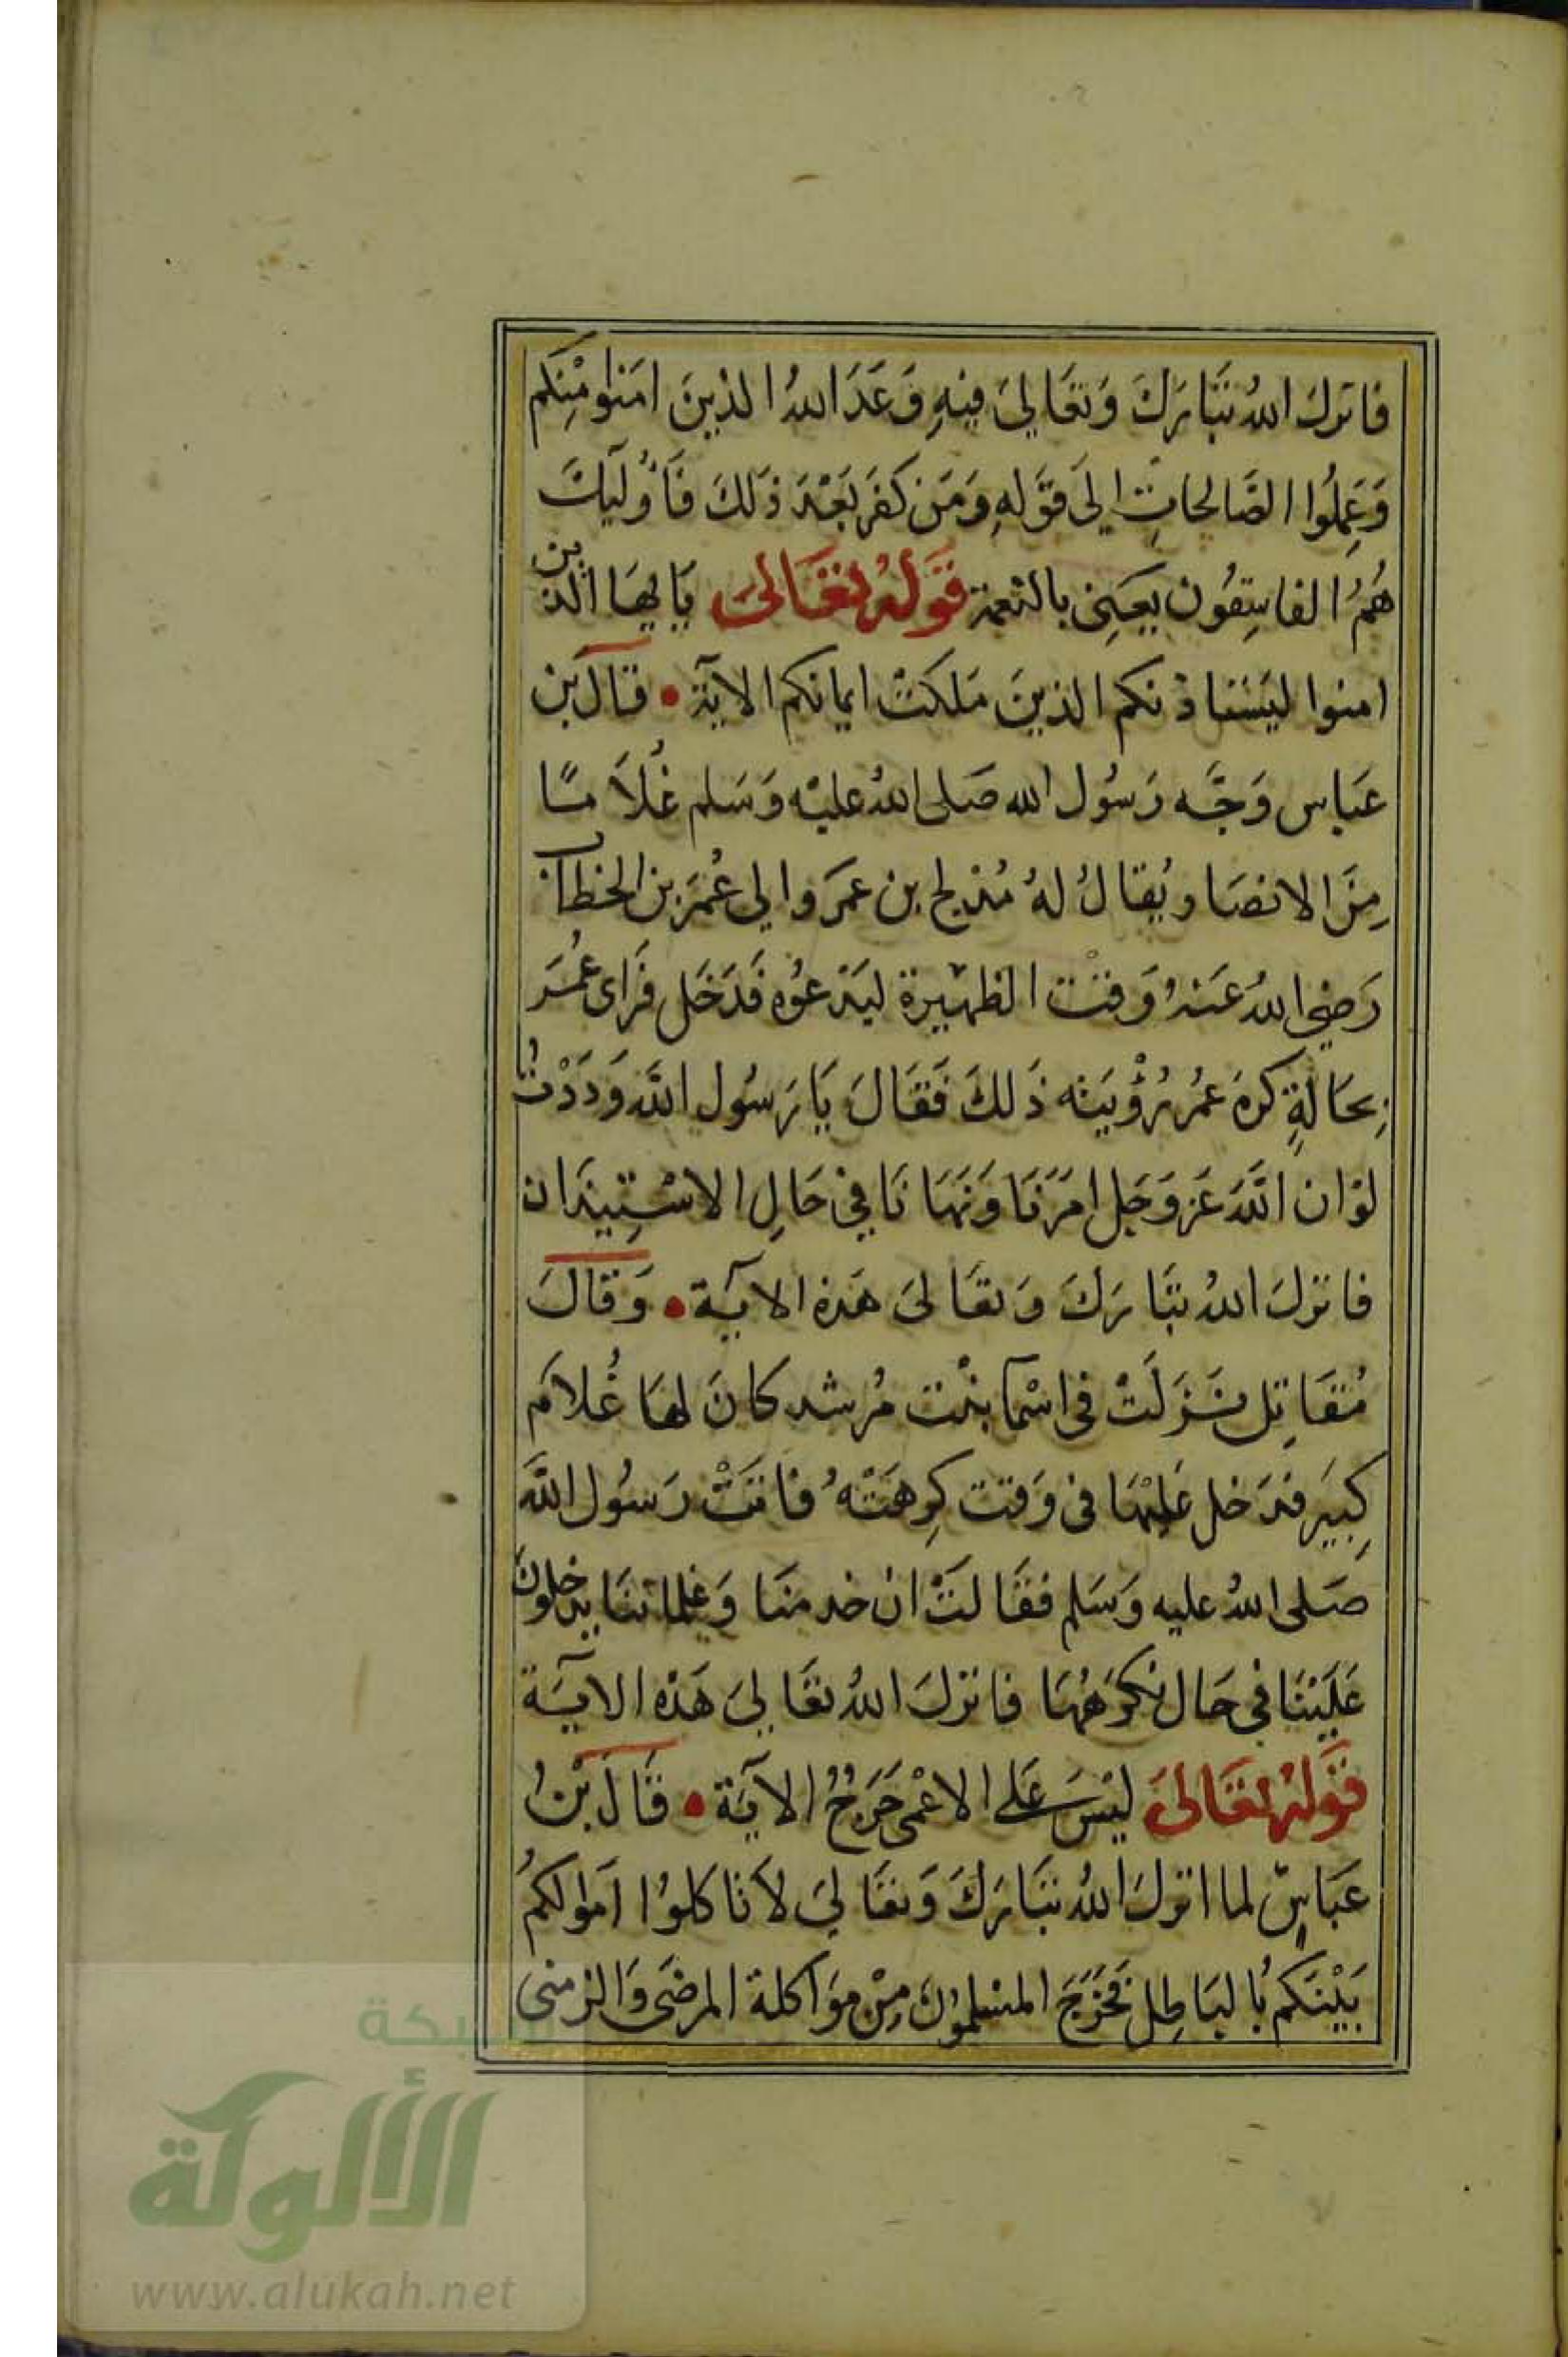 فانزل اللهُ تَبَارَكَ وَتعَاليَ فيهِ وَعَدَ اللهُ الذينَ امَنوا مِنِكم
وَعَمِلُوا الصَّالحاتِ اِلىَ قَوَلهِ وَمَن كفَر بَعْدَ ذلكَ فَأُولَيٓكَ
هُمُ الفاسِقُون يعَنِى بالنعمة قَوَلهُ تعَالىَ يَايهَا الذين
امنوا ليَسْتاذنكم الذينَ مَلكَتْ ايمانكم الاٰية • قَالَ بن
عَباس وَجَّه رَسُول الله صَلى اللهُ عليْه وَسَلم غُلاَمًا
مِنَ الانصَار يُقالُ لهُ مُدلج بن عمَرو الي عُمَر بن الخطاب
رَضيَ اللهُ عَنهُ وَقْت الظهِيرة ليَدعُوه فَدَخَل فَرَاى عُمَر
بِحَالَةٍ كرهَ عمُر رُؤْيَته ذَلكَ فَقَالَ يَا رَسُول اللَّه وَدَدْتُ
لوْ ان اللَّهَ عَز وَجَل امَرَنَا وَنَهَانَا فيْ حَالِ الاسْتِيذَان
فانزلَ اللهُ تبَّارَكَ وَتعَالىَ هَذه الايَة • وَقَالَ
مُقَاتِل نَزَلَتْ في اسْمآ بنْت مُرشد كانَ لهَا غُلاَم
كِبيَر فدَخل عَليْهَا في وَقت كِرهَتْهُ فاتَتْ رَسُول اللَّه
صَلى اللهُ عليه وَسَلم فقَالَتْ ان خدمنَا وَغلماننَا يدخلونَ
عَلَيْنَا فيْ حَال نكرَههَا فانزلَ اللهُ تعَاليَ هَذه الايَٓة
قَوَلهُ تعَالىَ ليْسَ عَلى الاعْمى حَرَجُ الاٰيَة • قَالَ بْنُ
عَبَاسٍ لما انزلَ اللهُ تبَارَكَ وَتعَاليَ لاَ تَاكلوُا امَوالكمُ
بَيْنَكم بُالبَاطِل تَحَرَجَ المسْلمُونَ مِنْ مَوَاكلة المرضَى وَالزمنى
شبكة
الألوكة
www.alukah.net